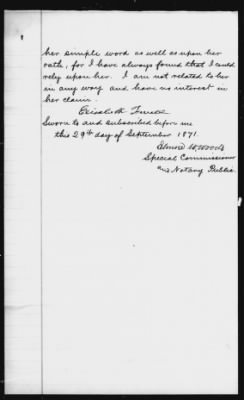 her simple word as well as upon her
oath, for I have always found that I could
rely upon her. I am not related to her
in any way and have no interest in
her claim.
Elizabeth
Sworn to and subscribed before me
this 29th day of September 1871.
Elmore W. Woods
Special Commissioner
and Notary Public